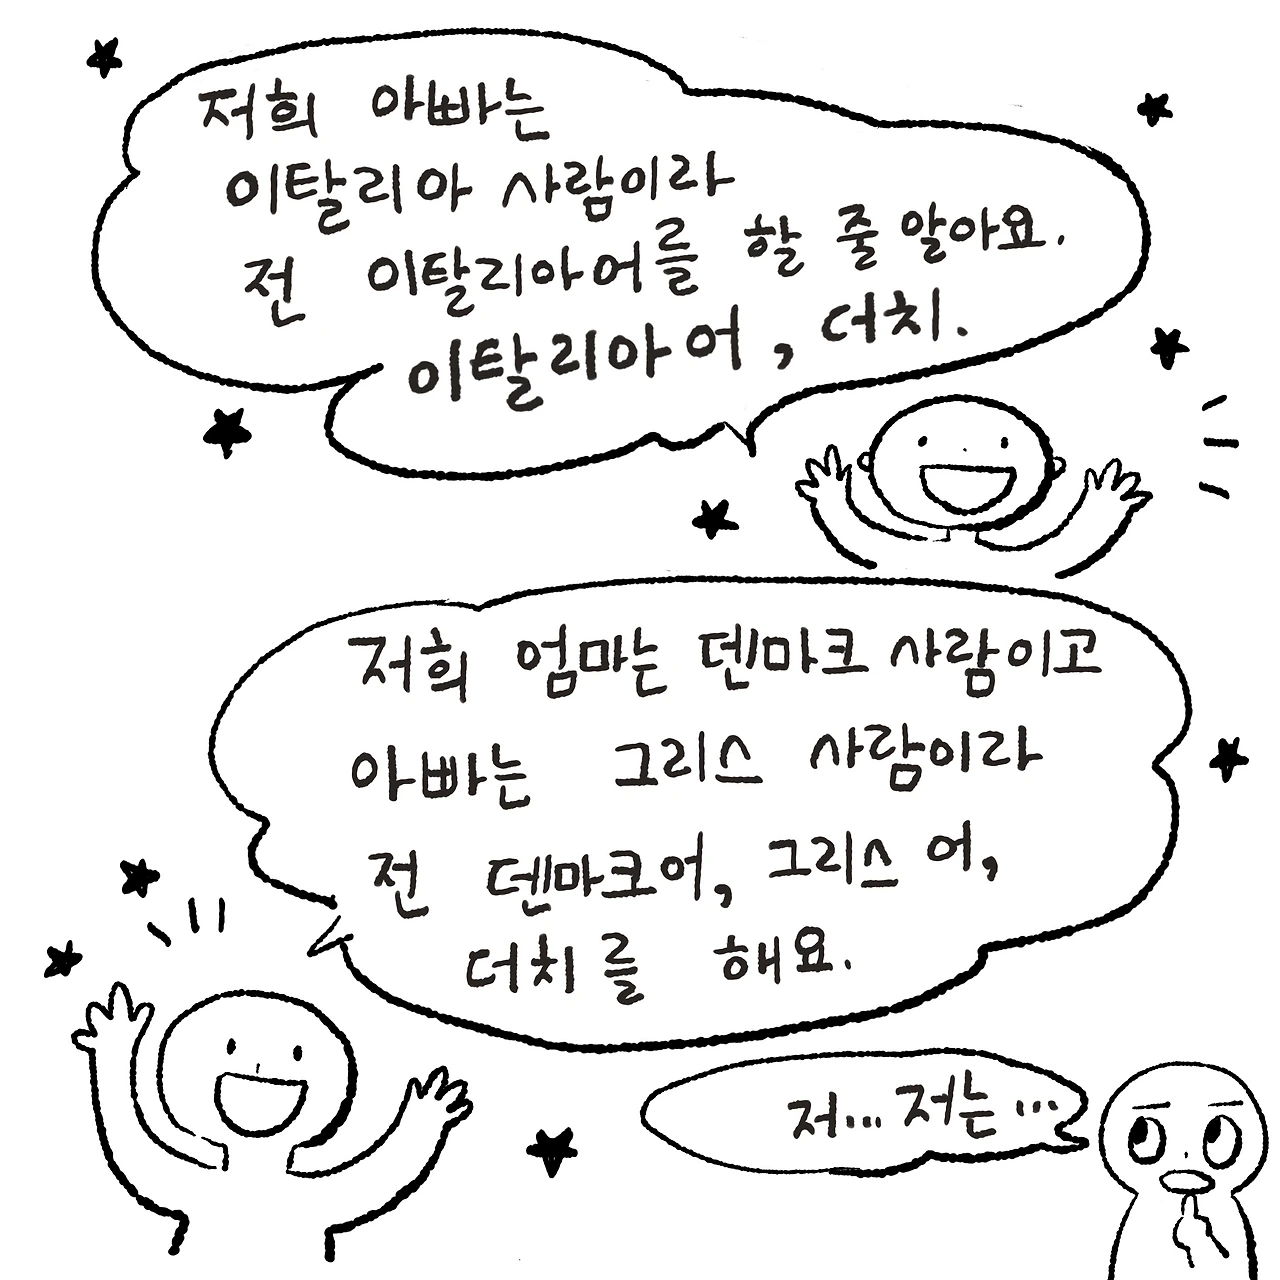 저희 아빠는
이탈리아 사람이라
전 이탈리아어를 할 줄 알아요.
이탈리아어, 더치.
저희 엄마는 덴마크 사람이고
아빠는 그리스 사람이라
전 덴마크어, 그리스어,
더치를 해요.
저... 저는...